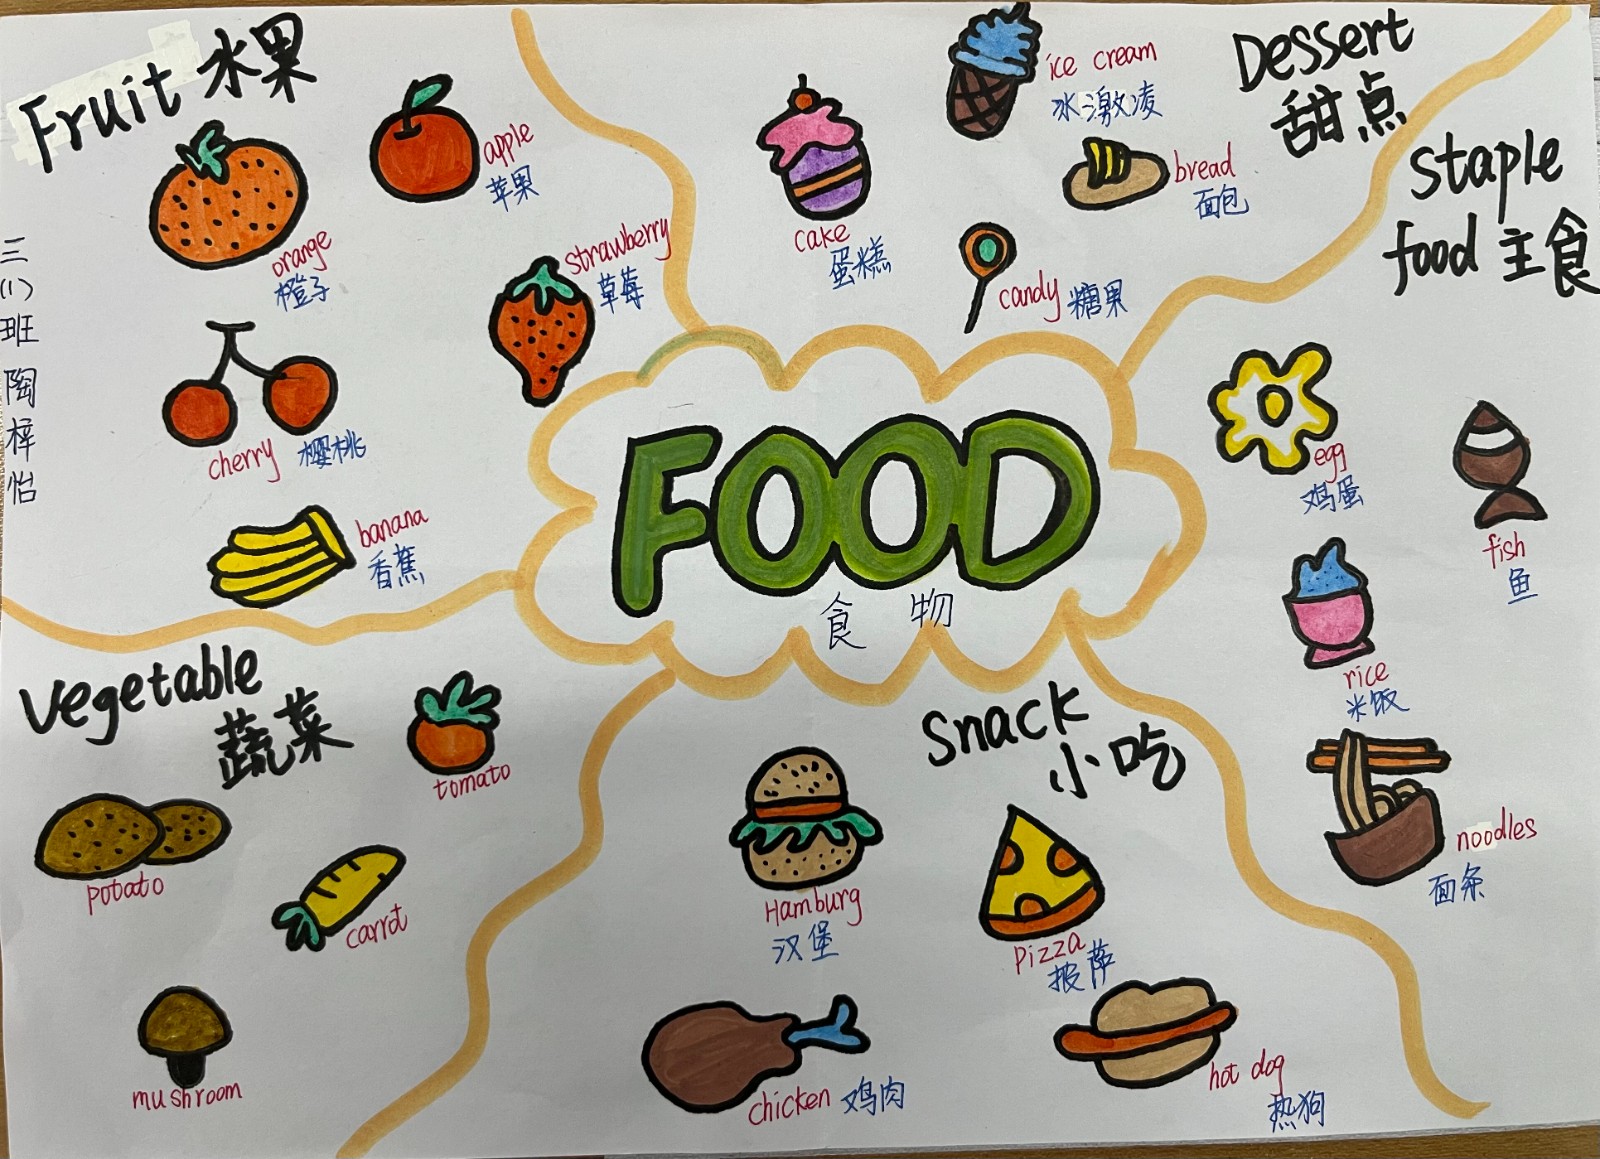 Fruit 水果
apple
苹果
orange
橙子
strawberry
草莓
cherry 樱桃
banana
香蕉
三(1)班 陶梓怡
ice cream
冰激凌
Dessert
甜点
cake
蛋糕
bread
面包
candy 糖果
staple
food 主食
egg
鸡蛋
fish
鱼
rice
米饭
noodles
面条
FOOD
食物
vegetable
蔬菜
tomato
potato
carrot
mushroom
snack
小吃
Hamburg
汉堡
Pizza
披萨
chicken 鸡肉
hot dog
热狗